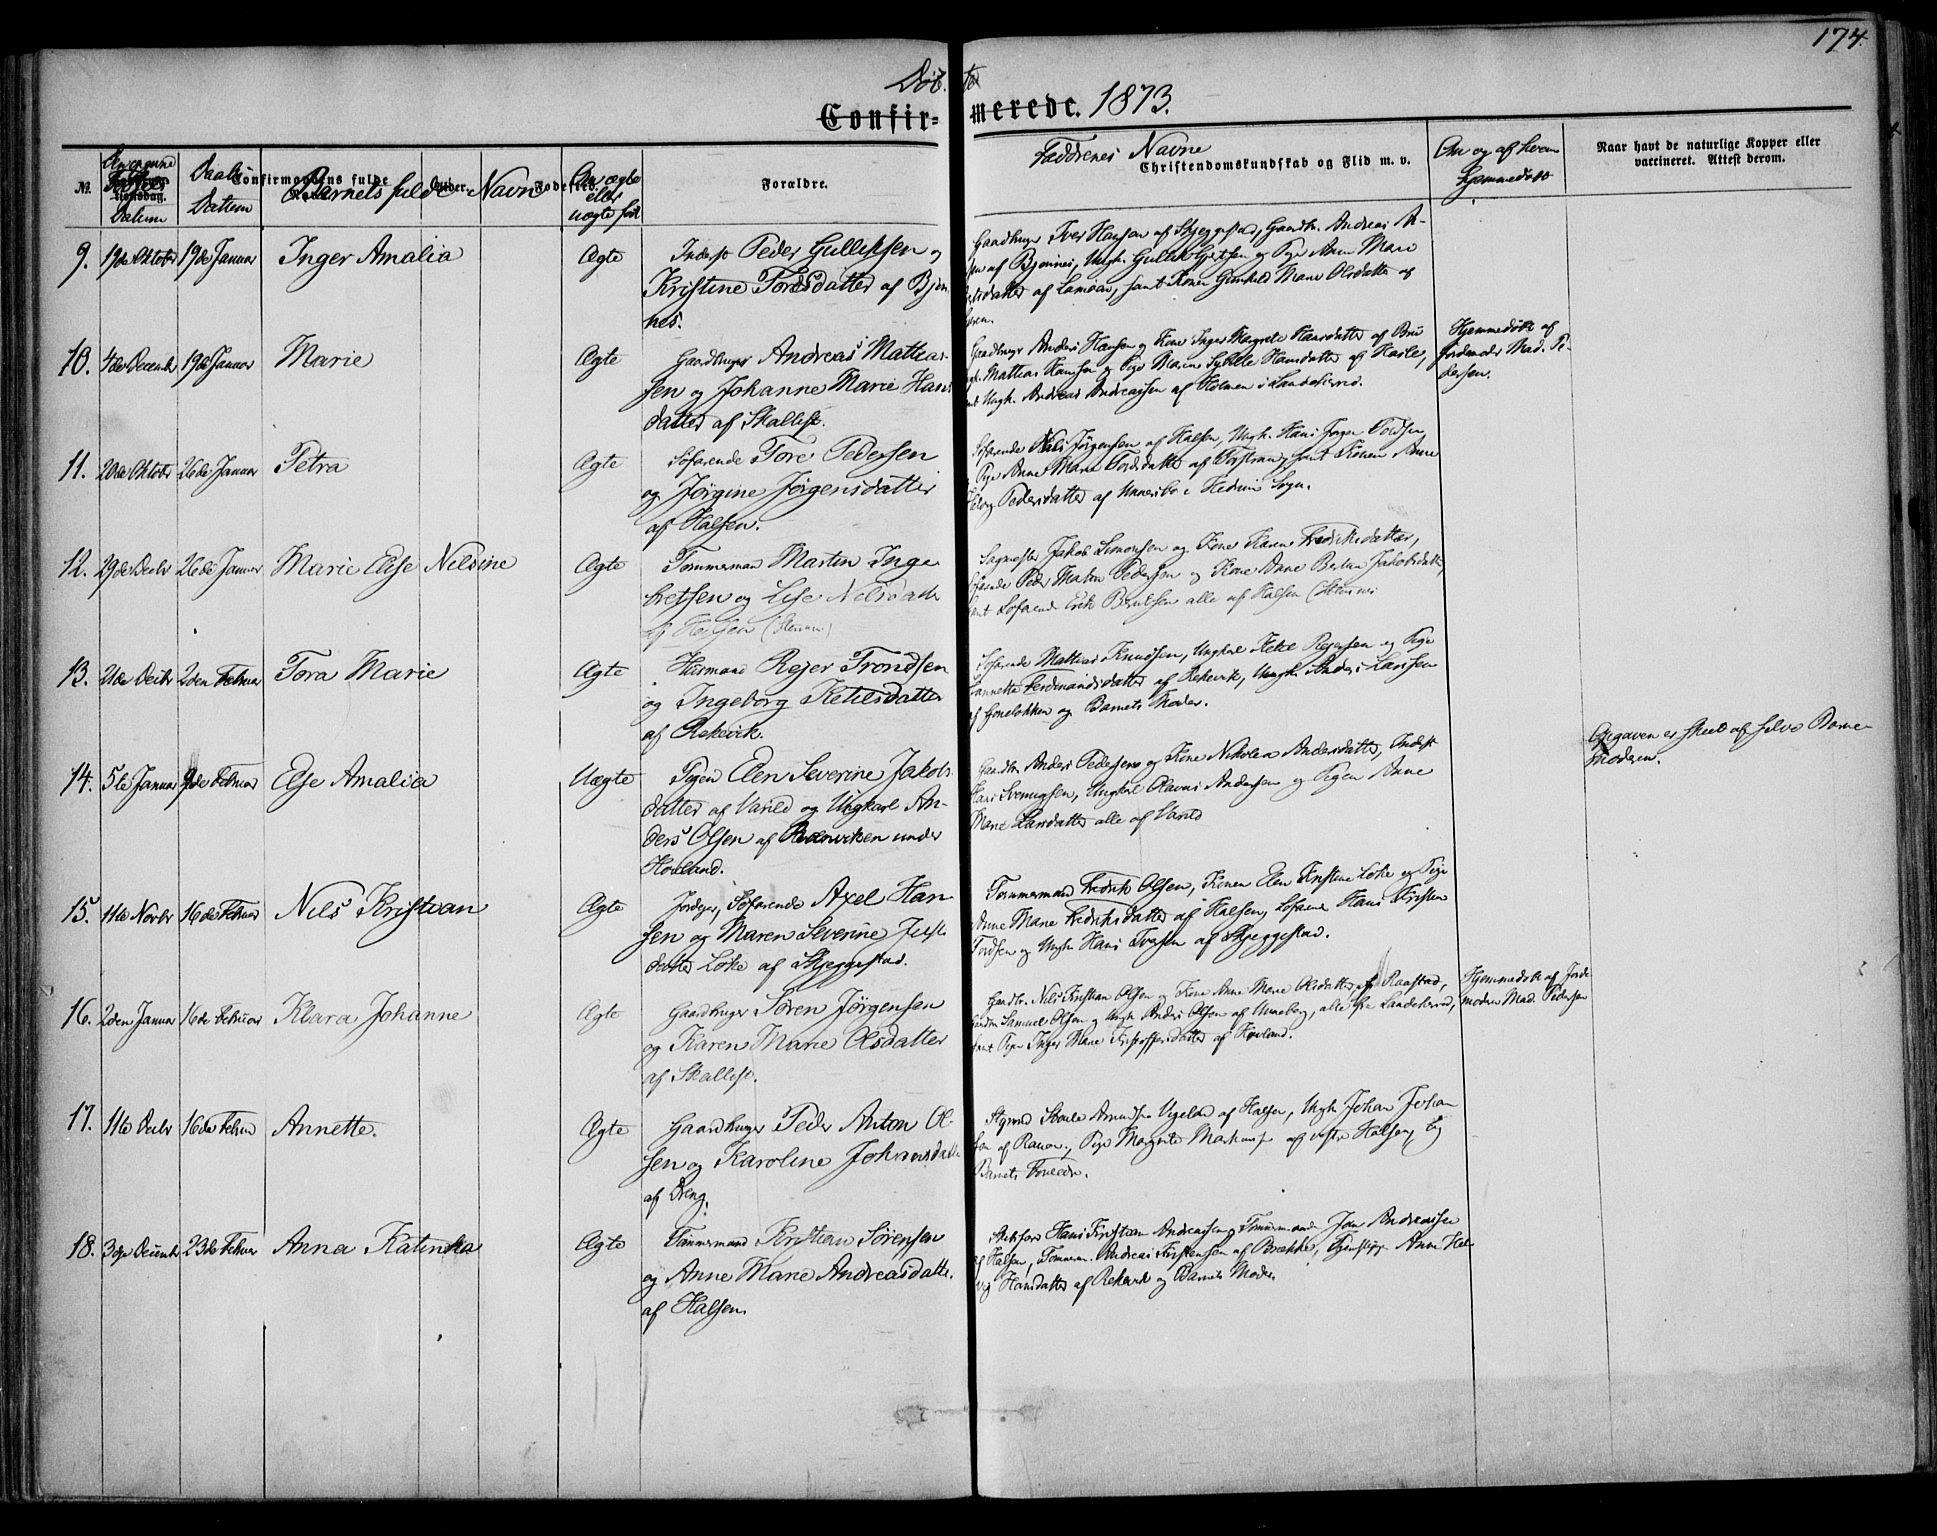 174.
Døbte
Confirmerede. 1873.
No. Datum
Daabs Dattum
Confirmandens fulde
Barnets fulde Navn
Fødested.
Om ægte eller uægte fød
Forældre.
Faddrenes Navne
Christendomskundskab og Flid m. v.
Om og af hvem hjemmedøbt
Naar havt de naturlige Kopper eller
vaccineret. Attest derom.
9. 19de Oktober 19de Januar Inger Amalia Ægte Inderst Peder Gulliksen og
Kristine Tordsdatter af Bjøn-
nes.
Gaardbruger Iver Hansen af Skjeggestad, Gaardbr. Andreas
af Bjønnes, Ungk. Gullik og Pige Anne Marie
af Lamøen, samt Konen Gunhild Marie Olsdatter
10. 4de Decembr 19de Januar Marie Ægte Gaardbruger Andreas Mathias-
sen og Johanne Marie Hans-
datter af Skallist.
Gaardbruger Anders Hansen og Kone Inger Margrete Hansdatter af
Mathias Hansen og Pige Maren Sybille Hansdatter af Hasle,
samt Ungk. Andreas Andreassen af Holmen i Sandeherred.
Hjemmedøbt af
Jordemoder Mad. Pe-
dersen.
11. 20de Oktober 26de Januar Petra Ægte Søfarende Tore Pedersen
og Jørgine Jørgensdatter
af Halsen.
Søfarende Niels Jørgensen af Halsen, Ungk. Hans Jørgen Tordsen,
Pige Anne Marie Tordsdatter af samt Konen Anne
Pedersdatter af i Hedrum Sogn.
12. 29de Decbr 26de Januar Marie Else Nilsine Ægte Tømmermand Martin Inge-
bretsen og Else Nilsdatt
af Halsen
Jakob Simonsen og Kone Karen Fredriksdatter,
Søfarende Peder Martin Pedersen og Kone Anne Jakobsdatt,
samt Søfarende Erik Berntsen alle af Halsen
13. 21de Decbr 2den Februar Tora Marie Ægte Huusmand Rejer Trondsen
og Ingeborg Ketilsdatter
af Rekevik.
Søfarende Mathias Knudsen, Ungkarl Ketil Rejersen og Pige
Ferdinandsdatter af Rekevik, Ungk. Anders Larssen
af og Barnets Moder.
14. 5te Januar 9de Februar Else Amalia Uægte Pigen Elen Severine Jakobs-
datter af Varild og Ungkarl An-
ders Olsen af under
Hovland.
Gaardbr. Anders Pedersen og Kone Nikolea Andersdatter, Inderst
Hans Ungkarl Olavus Andersen og Pigen Anne
Marie Larsdatter alle af Varild
Opgaven er skeet af selve Barne-
moderen.
15. 11te Novbr 16de Februar Nils Kristian Ægte Jordejer, Søfarende Axel Han-
sen og Maren Severine Just-
datter Løke af Skjeggestad.
Tømmermand Fredrik Olsen, Konen Elen Kristine Løke og Pige
Anne Marie Fredriksdatter af Halsen, Søfarend Hans Kristen
Tordsen og Ungk. Hans Iversen af Skjeggestad.
16. 2den Januar 16de Februar Klara Johanne Ægte Gaardbruger Søren Jørgensen
og Karen Marie Olsdatter
af Skallist.
Gaardbr. Nils Kristian Olsen og Kone Anne Marie Olsdatter, af Raastad,
Samuel Olsen og Ungk. Anders Olsen af Unneberg, alle fra Sandeherred,
samt Pige Inger Marie Kristoffersdatter af Hovland.
Hjemmedøbt af Jorde-
moder Mad. Pedersen
17. 11te Decbr 16de Februar Annette. Ægte Gaardbruger Peder Anton Ol-
sen og Karoline Johansdatt
af Dreng.
af Halsen, Ungk. Johan Johan-
sen af Pige Margrete af vestre Halsen, og
Barnets Forældre.
18. 3die Decembr 23de Februar Anna Katinka Ægte Tømmermand Kristian Sørensen
og Anne Marie Andreasdatter.
af Halsen.
Hans Kristian Andreassen og Tømmermand Jan Andreassen
af Halsen, Tømmerm. Andreas Kristensen af Brekke, Anne Hel-
vig Hansdatter af Rekevik og Barnets Moder.